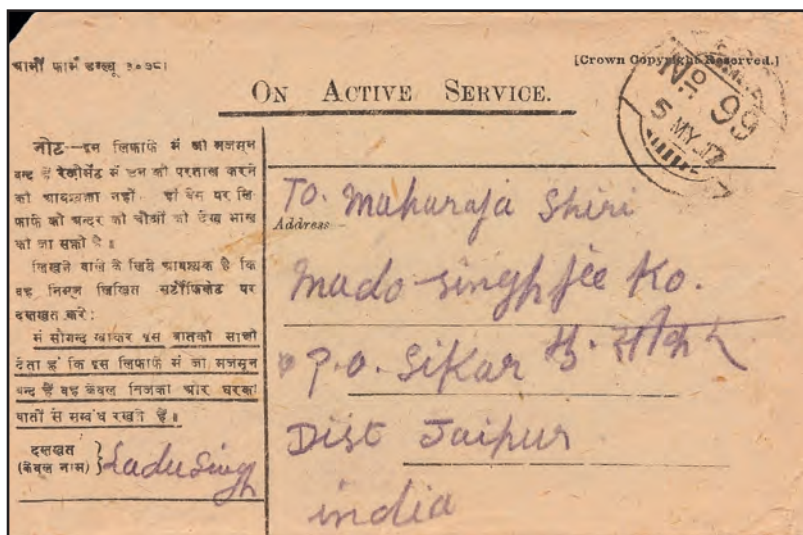 आर्मी फार्म डब्ल्यू ३०७८।
[Crown Copyright Reserved.]
ON ACTIVE SERVICE.
No 99
5 MY 17
नोट—इस लिफाफे में जो मजमून
बन्द है रेजीमेंट में उस को परताल करने
की आवश्यक्ता नहीं। हां बेस पर लि
फाफे की अन्दर की चीजों की देख भाल
की जा सक्ती है॥
लिखने वाले के लिये आवश्यक है कि
वह निम्न लिखित सर्टीफिकेट पर
दसखत करे:
मैं सौगन्द खाकर इस बातकी साक्षी
देता हूं कि इस लिफाफे में जो मजमून
बन्द हैं वह केवल निजकी और घरकी
बातों से सम्बंध रखते हैं॥
दसखत
(केवल नाम) } Ladu Singh
To. Maharaja Shiri
Address
Mado singh jee Ko.
P.O. Sikar सीकर
Dist Jaipur
india